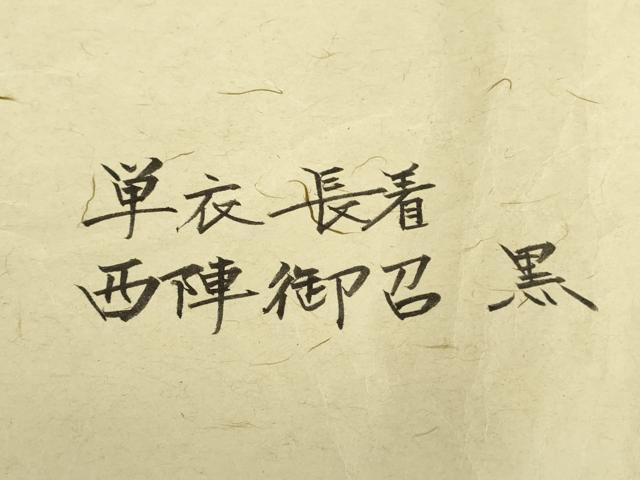 単衣長着
西陣御召 黒